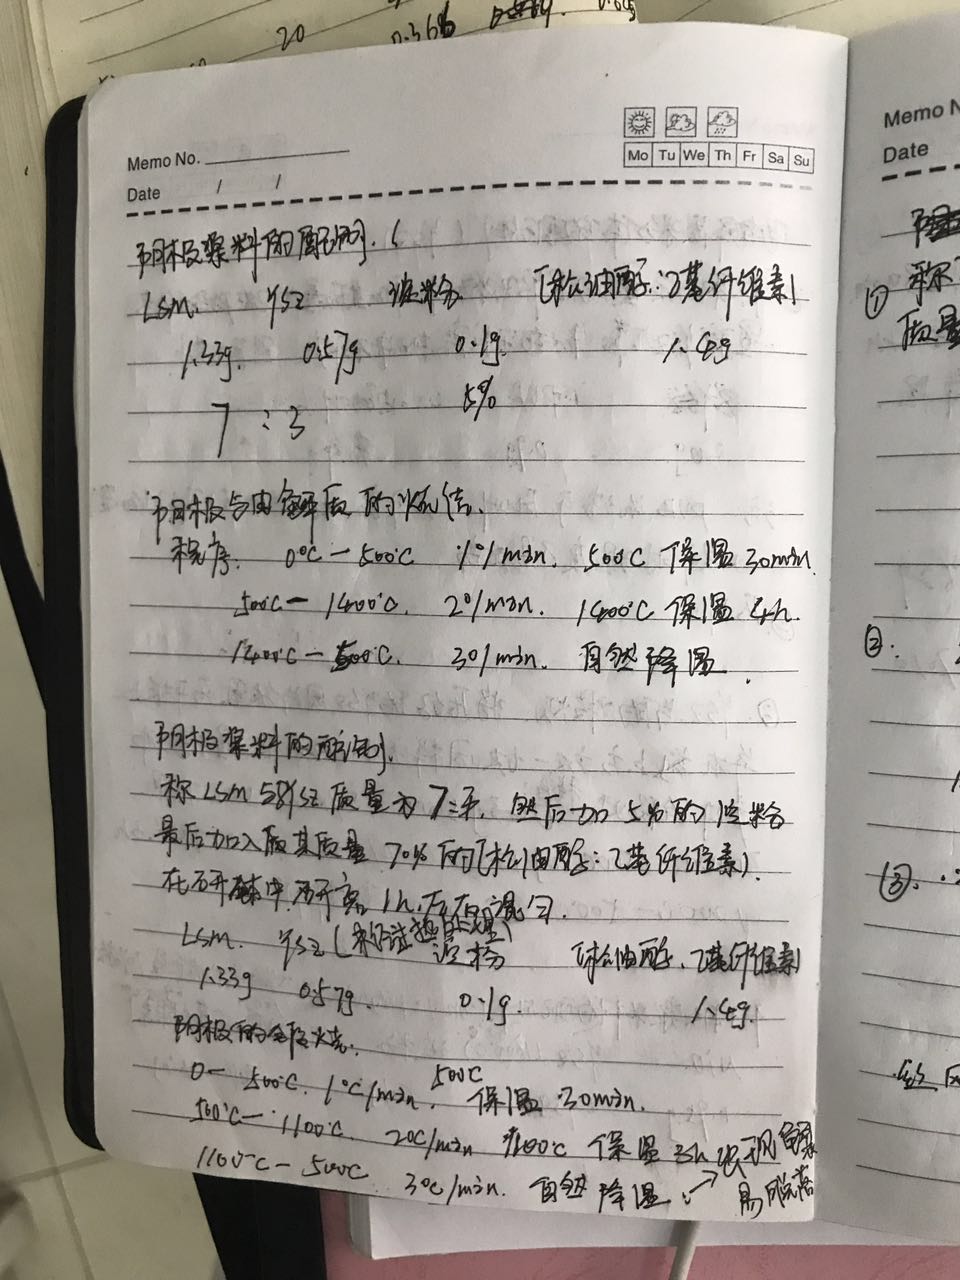 20 0.36%
Memo No.
Mo Tu We Th Fr Sa Su
Date / /
阴极浆料的配制. (
LSM. YSZ 淀粉 [松油醇:乙基纤维素]
1.33g. 0.57g 0.1g. 1.4g
7 : 3 5%
阴极与电解质的烧结.
程序. 0℃ — 500℃ 1°/min. 500℃ 保温 30min.
500℃ — 1400℃. 2°/min. 1400℃ 保温 4h.
1400℃ — 500℃. 3°/min. 自然降温.
阴极浆料的配制.
称 LSM 与YSZ 质量为 7:3, 然后加 5% 的淀粉
最后加入 质量 70% 的[松油醇:乙基纤维素].
在研钵中 研磨 1h, 左右 混匀.
LSM. YSZ 淀粉 [松油醇、乙基纤维素]
1.33g 0.57g. 0.1g. 1.4g.
阴极的
0— 500℃. 1℃/min. 500℃ 保温 30min.
500℃ — 1100℃. 2℃/min 1100℃ 保温 3h
1100℃ — 500℃ 3℃/min. 自然降温. → 易脱落
Memo N
Date
① 称
质量
②.
③.